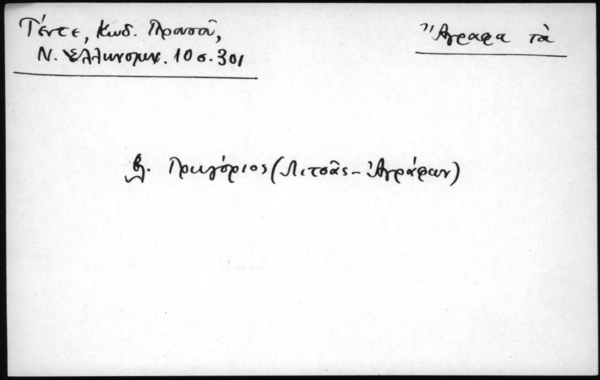 Γέντε, Κωδ. Πρασσᾶ,
Ν. Ἑλληνομν. 10 σ. 301
Ἄγραφα τὰ
βλ. Γρηγόριος (Λιτσᾶς - Ἀγράφων)